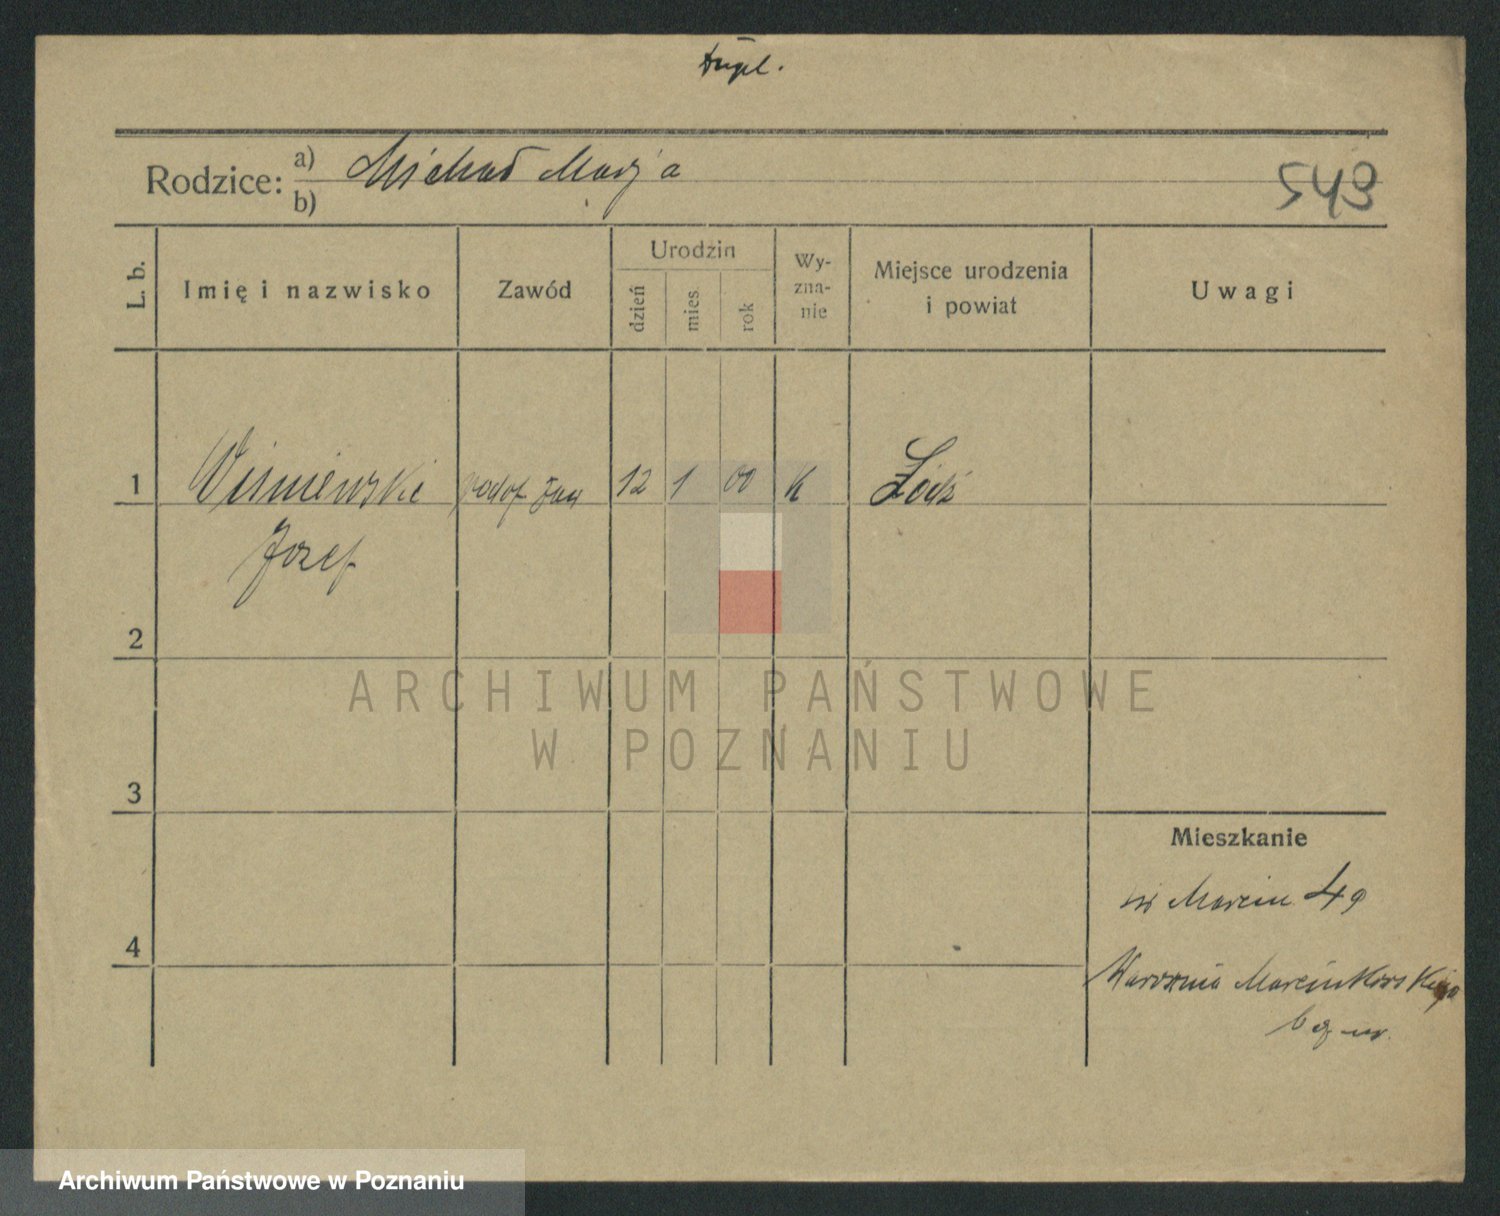 Dupl.
Rodzice: a) Michał Marja
b)
543
L. b.
Imię i nazwisko
Zawód
Urodzin
dzień
mies.
rok
Wy-
zna-
nie
Miejsce urodzenia
i powiat
Uwagi
1 Wiśniewski podof. 12 1 00 K Łódź
Józef
2
ARCHIWUM PAŃSTWOWE
W POZNANIU
3
Mieszkanie
św Marcin 49
4
Marcinkowskiego
Archiwum Państwowe w Poznaniu